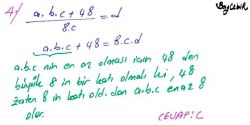 Bay Çelik
4) a.b.c + 48 / 8.c = d
a.b.c + 48 = 8.c.d
a.b.c nin en az olması için 48 den
büyük 8 in bir katı olmalı ki, 48
zaten 8 in katı old. dan a.b.c en az 8
olur.
CEVAP: C